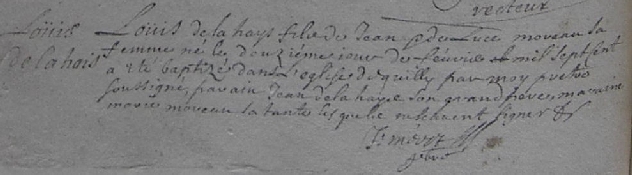 recteur
Loüis
de la hois
Loüis de la hays fils de Jean et de Luce moreau sa
femme né le douziéme jour de feuvrier mil sept cent
a été baptizé dans l'eglise de quilly par moy pretre
soussigné, parain Jean de la haye son grand pere, maraine
marie moreau sa tante lesquels ne scavent signer &